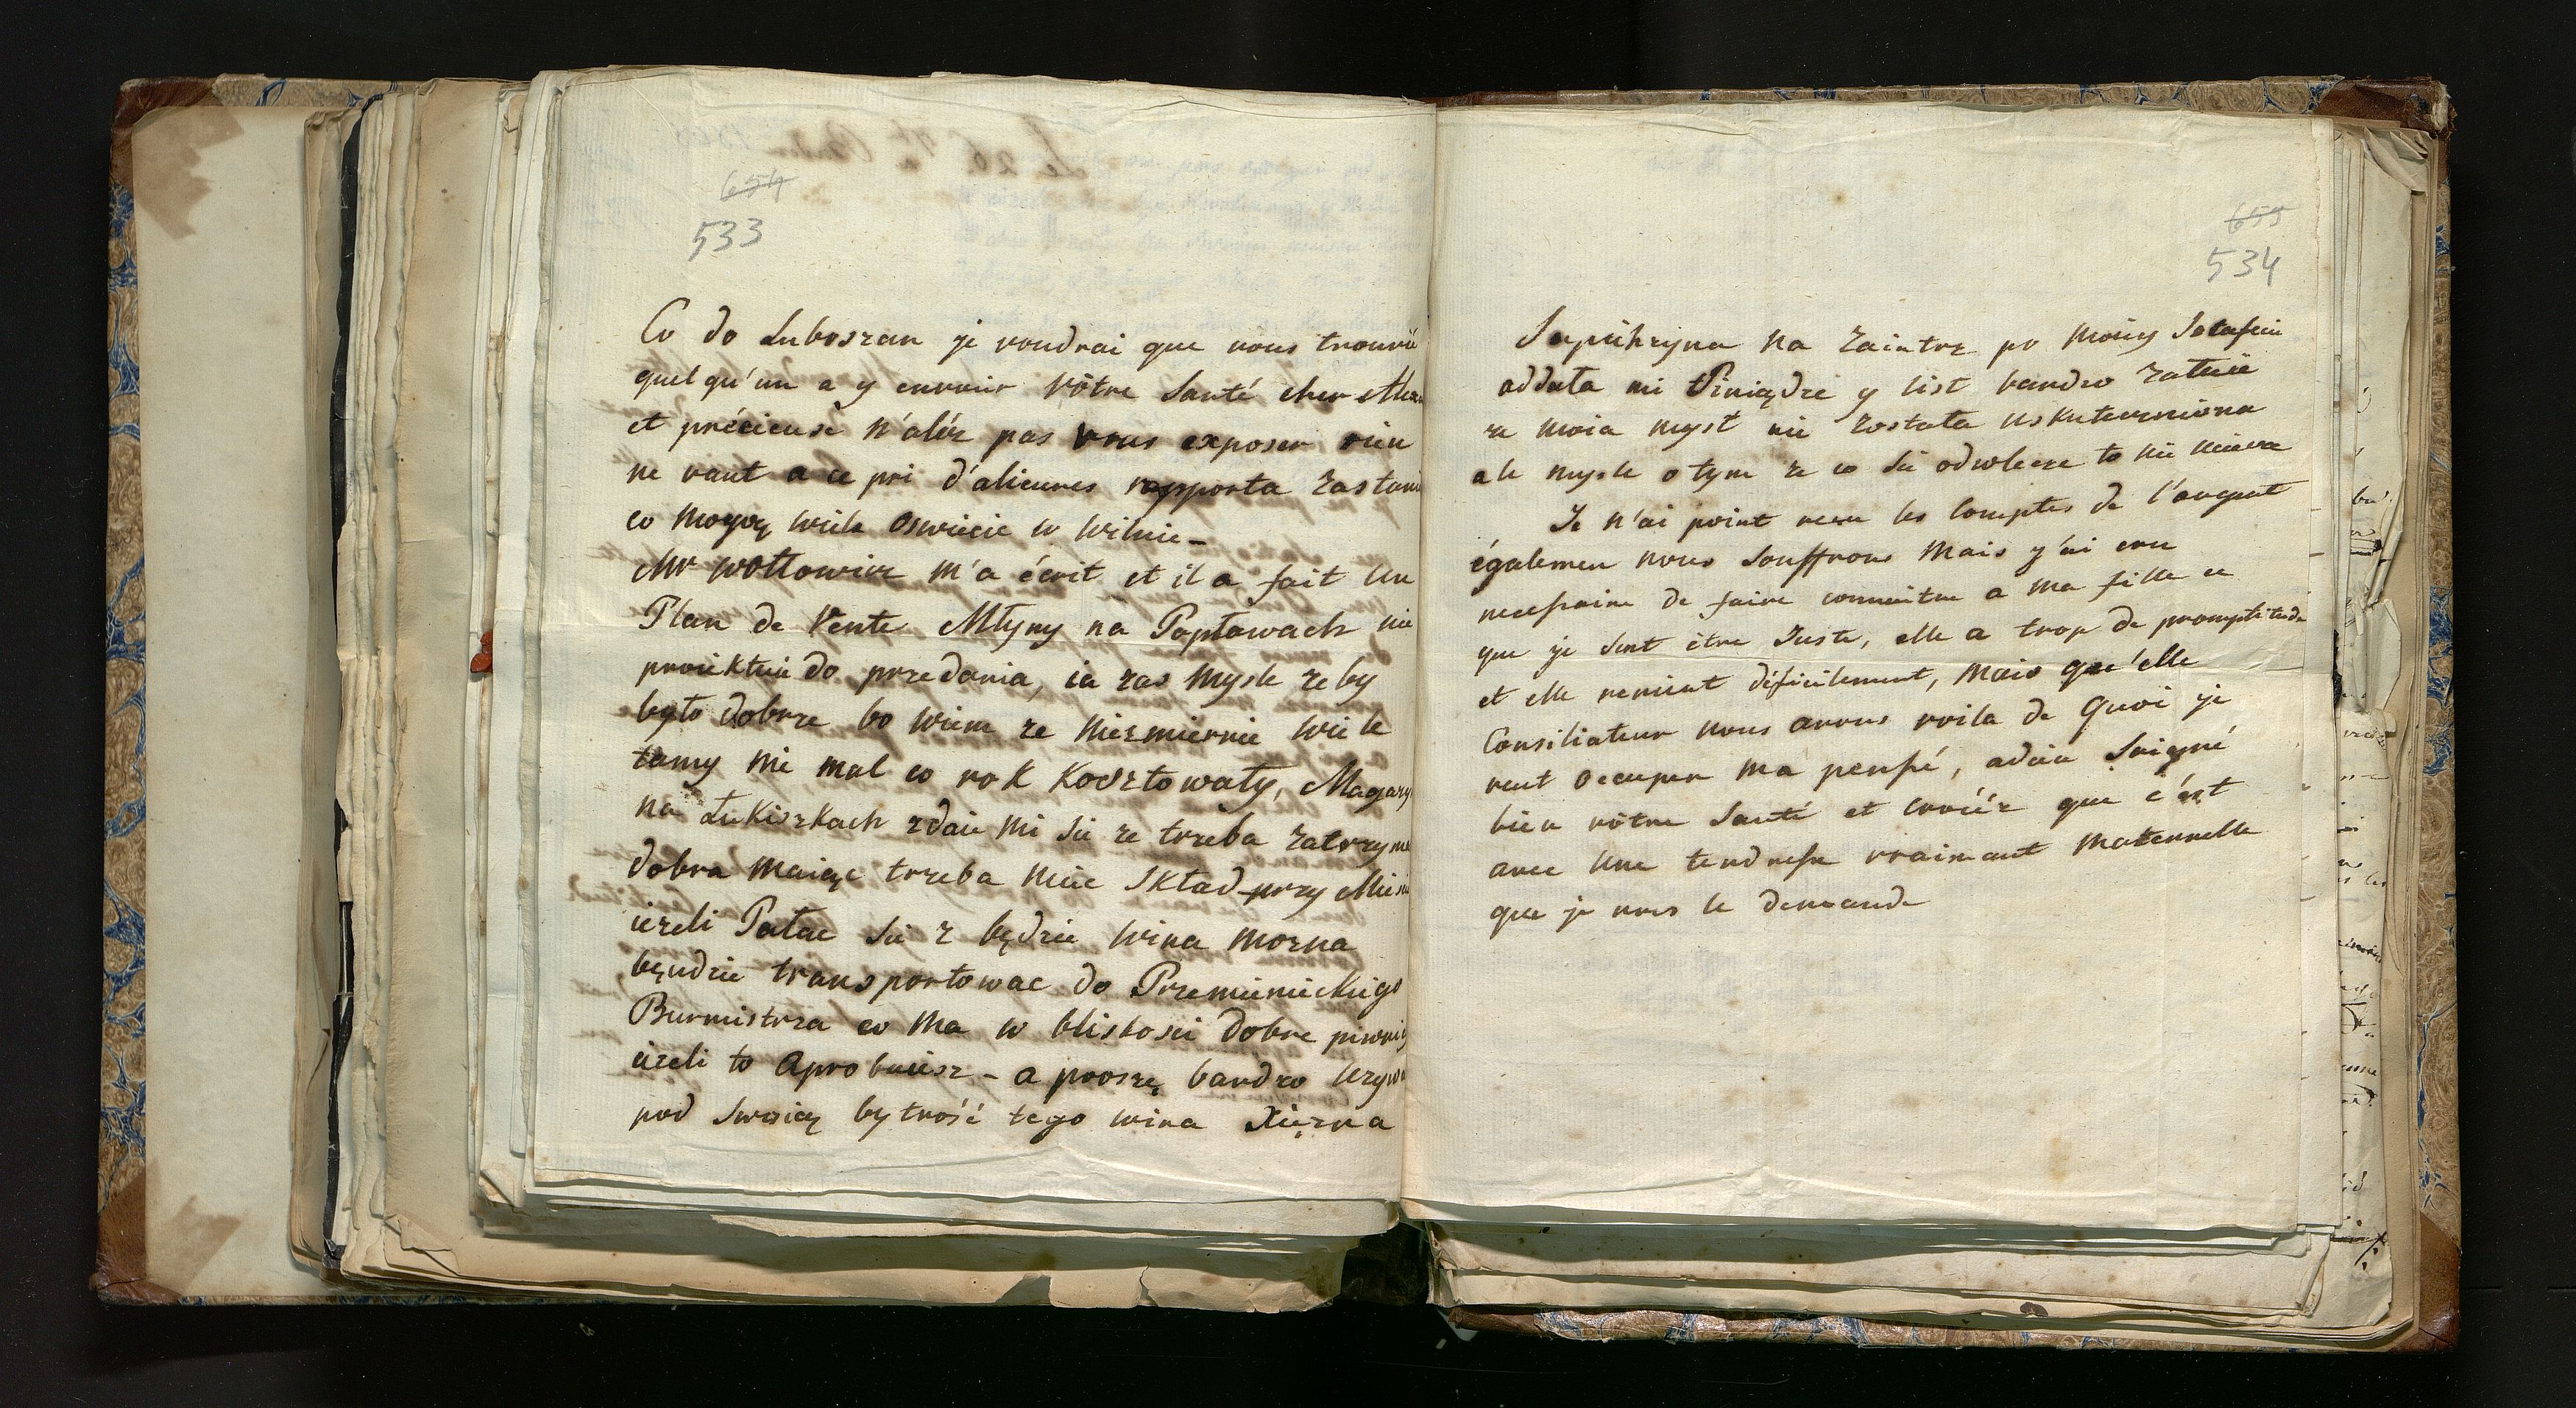 654
533
Co do Luboszan je voudrai que vous trouvié
quelqu'un a y envoier vôtre Santé cher et
et précieuse n'aléz pas vous exposer rien
ne vaut a ce pri d'alieures rapporta
co mogvą wiele oswiecic w Wilnie-
Mr Wołłowicz m'a écrit et il a fait un
Plan de Vente Młyny na Popławach nie
proiektuie do przedania, ia zas mysle zeby
było dobrze bo wiem ze niezmiernie wiele
tamy mi mal co rok Kosztowały, Magazy
na Łukiszkach zdaie mi sie ze trzeba zatrzyma
dobra maiąc trzeba miec Skład przy Miesci
iezeli Pałac sie z będzie wina mozna
bęndzie transportowac do Przemienieckiego
Burmistrza co ma w bliskosci dobre piwnicy
iezeli to Aprobuiesz - a proszę bardzo Uzywa
pod Swoią bytność tego wina Xięzna
655
534
Sapiehzyna na zaiutrz po moiey
oddała mi Pieniądze y list bardzo załuie
ze moia mysl nie została uskuteczniona
ale mysle o tym ze co sie odwlecze to nie uciecze
Je n'ai point recu les Comptes de l'argent
égalemen nous Souffrons Mais j'ai cru
necessaire de faire connoitre a ma fille ce
que je sent étre Juste, elle a trop de promptitude
et elle revient dificilement, Mais qu'elle
Consiliateur nous avons voila de Quoi je
veut occuper ma pensé, adieu Soigné
bien vôtre Santé et croiéz que c'ést
avec Une tendresse vraimant Maternelle
que je vous le demande